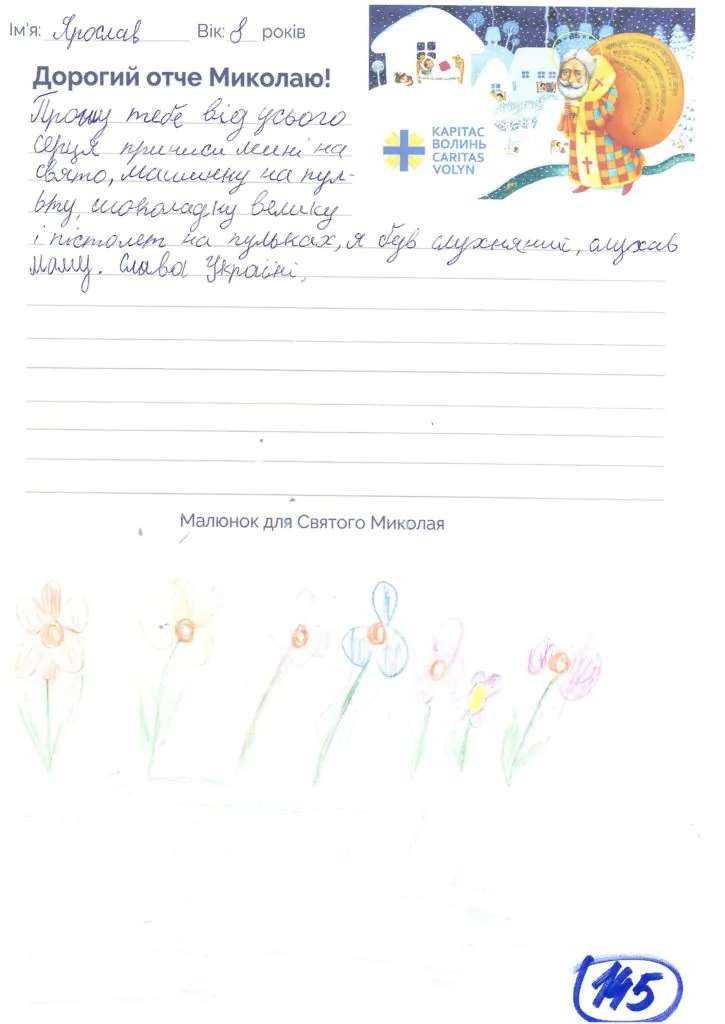 Ім'я: Ярослав Вік: 8 років
Дорогий отче Миколаю!
Прошу тебе від усього
серця принеси мені на
свято, машинку на пул-
ьту, шоколадку велику
і пістолет на пульках, я був слухняний, слухав
маму. Слава Україні,
КАРІТАС
ВОЛИНЬ
CARITAS
VOLYN
Малюнок для Святого Миколая
145